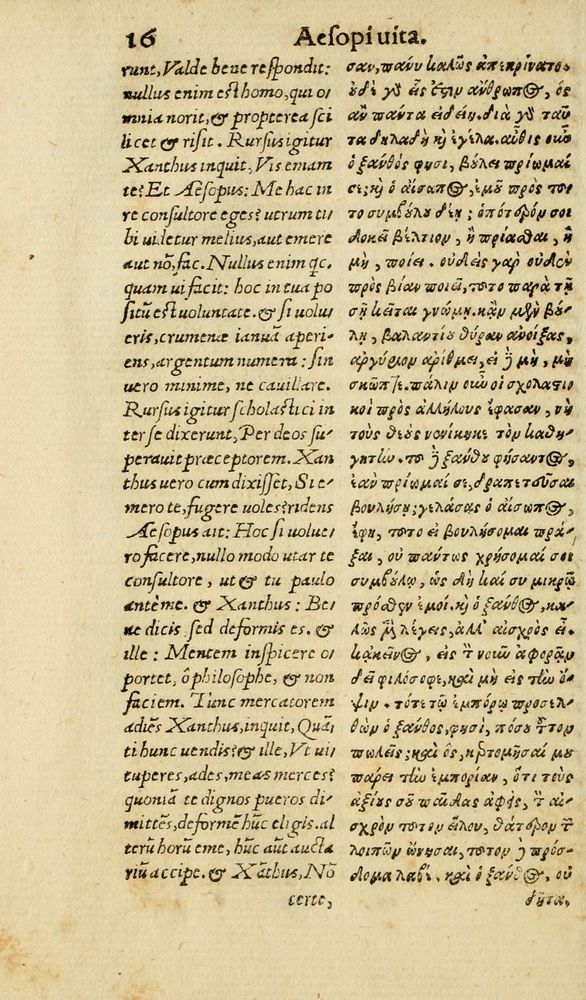 16 Aesopi uita.
runt, Valde bene respondit:
nullus enim est homo, qui o-
mnia norit, & propterea sci
licet & risit. Rursus igitur
Xanthus inquit, Vis emam
te? Et Aesopus: Me hac in
re consultore eges? utrum ti-
bi uidetur melius, aut emere
aut nõ, fac. Nullus enim qc.
quam ui facit: hoc in tua po
situm est uoluntate. & si uolu
eris, crumenæ ianuã aperi-
ens, argentum numera: sin
uero minime, ne cauillare.
Rursus igitur scholastici in
ter se dixerunt, Per deos su-
perauit præceptorem. Xan
thus uero cum dixisset, Si e-
mero te, fugere uoles? ridens
Aesopus ait: Hoc si uolue-
ro facere, nullo modo utar te
consultore, ut & tu paulo
antè me. & Xanthus: Be-
ne dicis, sed deformis es. &
ille: Mentem inspicere o-
portet, ô philosophe, & non
faciem. Tunc mercatorem
adiẽs Xanthus, inquit, Quã
ti hunc uendis? & ille, Vt ui-
tuperes, ades, meas merces?
quoniã te dignos pueros di-
mittẽs, deformẽ hũc eligis. al
terũ horũ eme, hũc aũt aucta
riũ accipe. & Xãthus, Nõ
certe,
σαν, πάνυ καλῶς ἀπεκρίνατο.
ουδὲ γὸ εἷς ἔστιν ἄνθρωπος, ὃς
ἂν πάντα εἰδείη. διὰ γὸ ταῦ
τα δηλαδὴ κὴ ἐγέλα. αὖθις οὖν
ὁ ξανθός φησι, βούλει πρίωμαί
σε; κὴ ὁ αἴσωπος, ἐμοῦ πρὸς τοῦ
το συμβούλου δέῃ; ὁπότερόν σοι
δοκεῖ βέλτιον, ἢ πρίασθαι, ἢ
μὴ, ποίει. οὐδεὶς γὰρ οὐδὲν
πρὸς βίαν ποιεῖ, τοῦτο παρὰ τῇ
σῇ κεῖται γνώμῃ. κἂν μὲν βού
λῃ, βαλαντίου θύραν ἀνοίξας,
ἀργύριον ἀρίθμει, εἰ δὲ μὴ, μὴ
σκῶπτε. πάλιν οὖν οἱ σχολαστι
κοὶ πρὸς ἀλλήλους ἔφασαν, νὴ
τοὺς θεοὺς νενίκηκε τὸν καθη-
γητήν. τοῦ δὲ ξάνθου φήσαντος,
ἐὰν πρίωμαί σε, δραπετεῦσαι
βουλήσῃ; γελάσας ὁ αἴσωπος,
ἔφη, τοῦτο εἰ βουλήσομαι πρᾶ-
ξαι, οὐ πάντως χρήσομαί σοι
συμβούλῳ, ὡς δὴ καὶ συ μικρῷ
πρόσθεν ἐμοί. κὴ ὁ ξάνθος, κα-
λῶς μὲν λέγεις, ἀλλ' αἰσχρὸς εἶ.
κἀκεῖνος, εἰς τὸν νοῦν ἀφορᾶν
δεῖ φιλόσοφε, καὶ μὴ εἰς τὴν ὄ-
ψιν. τότε τῷ ἐμπόρῳ προσελ-
θὼν ὁ ξάνθος, φησὶ, πόσου τοῦτον
πωλεῖς; καὶ ὃς, κερτομῆσαί μου
πάρει τὴν ἐμπορίαν, ὅτι τοὺς
ἀξίους σοῦ παῖδας ἀφεὶς, τὸν αἰ-
σχρὸν τοῦτον εἵλου, θάτερον τῶν
λοιπῶν ὤνησαι, τοῦτον δὲ πρόσ-
δομα λαβέ. καὶ ὁ ξάνθος, οὐ
δῆτα.